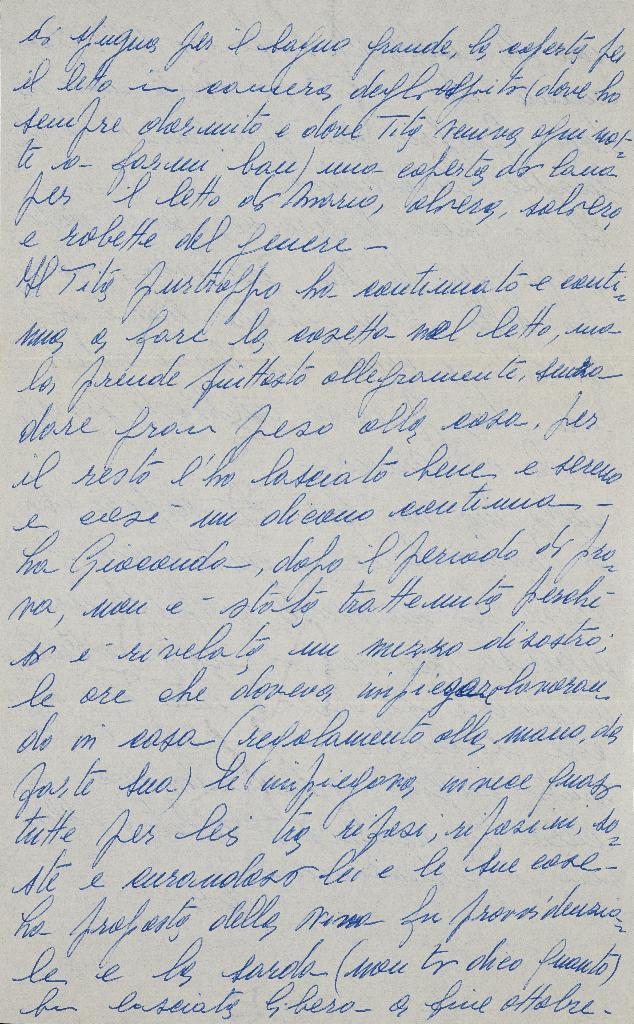 di spugna per il bagno grande, la coperta per
il letto in camera degli ospiti (dove ho
sempre dormito e dove Tita veniva ogni not-
te a farmi bau) una coperta di lana
per il letto di Mario, olivera, saliera,
e robette del genere -
Il Tita purtroppo ha continuato e conti=
nua a fare la cosetta nel letto, ma
la prende piuttosto allegramente, senza
dare gran peso alla cosa. Per
il resto l'ho lasciato bene e sereno
e così mi dicono continua -
La Gioconda, dopo il periodo di pro=
va, non è stata trattenuta perchè
si è rivelata un mezzo disastro;
le ore che doveva impiegare lavoran=
do in casa (regolamento alla mano, da
parte sua) le impiegava invece quasi
tutte per lei tra riposi, riposini, so=
ste e curandosi lei e le sue cose -
La proposta della fu provvidenzia=
le e la sarda (non ti dico quanto)
fu lasciata libera a fine ottobre -